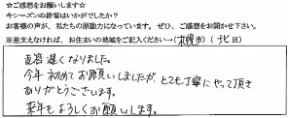 ☆ご感想をお願いします☆
今シーズンの排雪はいかがでしたか?
お客様の声が、私たちの原動力になっています。ぜひ、ご感想をお聞かせ下さい。
※差支えなければ、お住まいの地域をご記入ください→(札幌市)(北区)
返答遅くなりました。
今年初めてお願いしましたが、とても丁寧にやって頂き
ありがとうございます。
来年もよろしくお願いします。